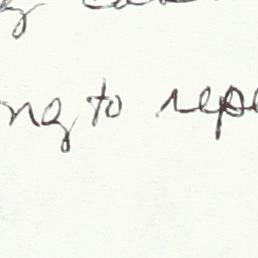 ng to repe